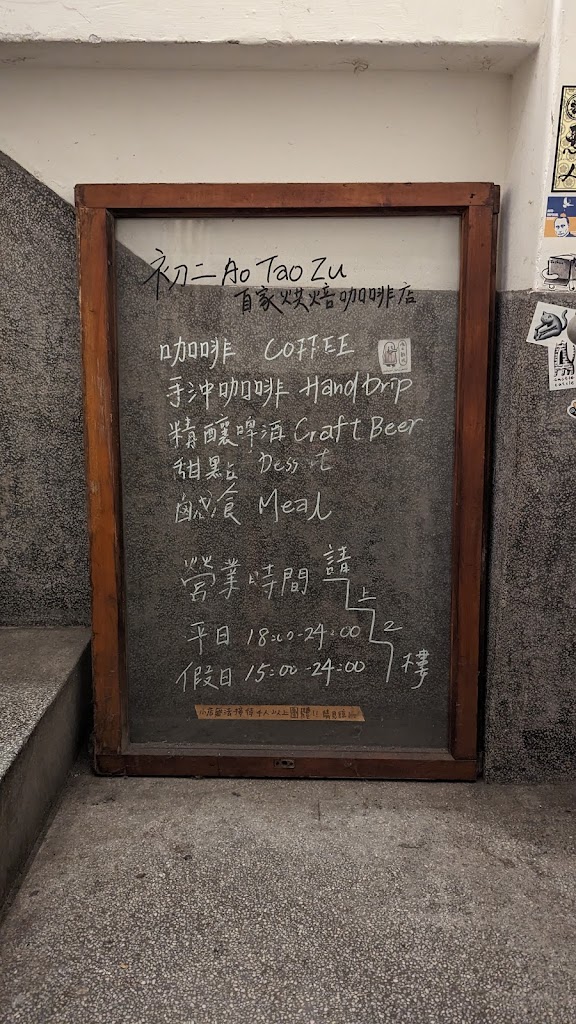 初二 Ao Tao Zu
自家烘焙咖啡店
咖啡 COFFEE
手沖咖啡 Hand Drip
精釀啤酒 Craft Beer
甜點
鹹食 Meal
營業時間
請上2樓
平日 18:00-24:00
假日 15:00-24:00